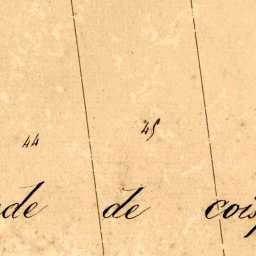 44 45
de de cois